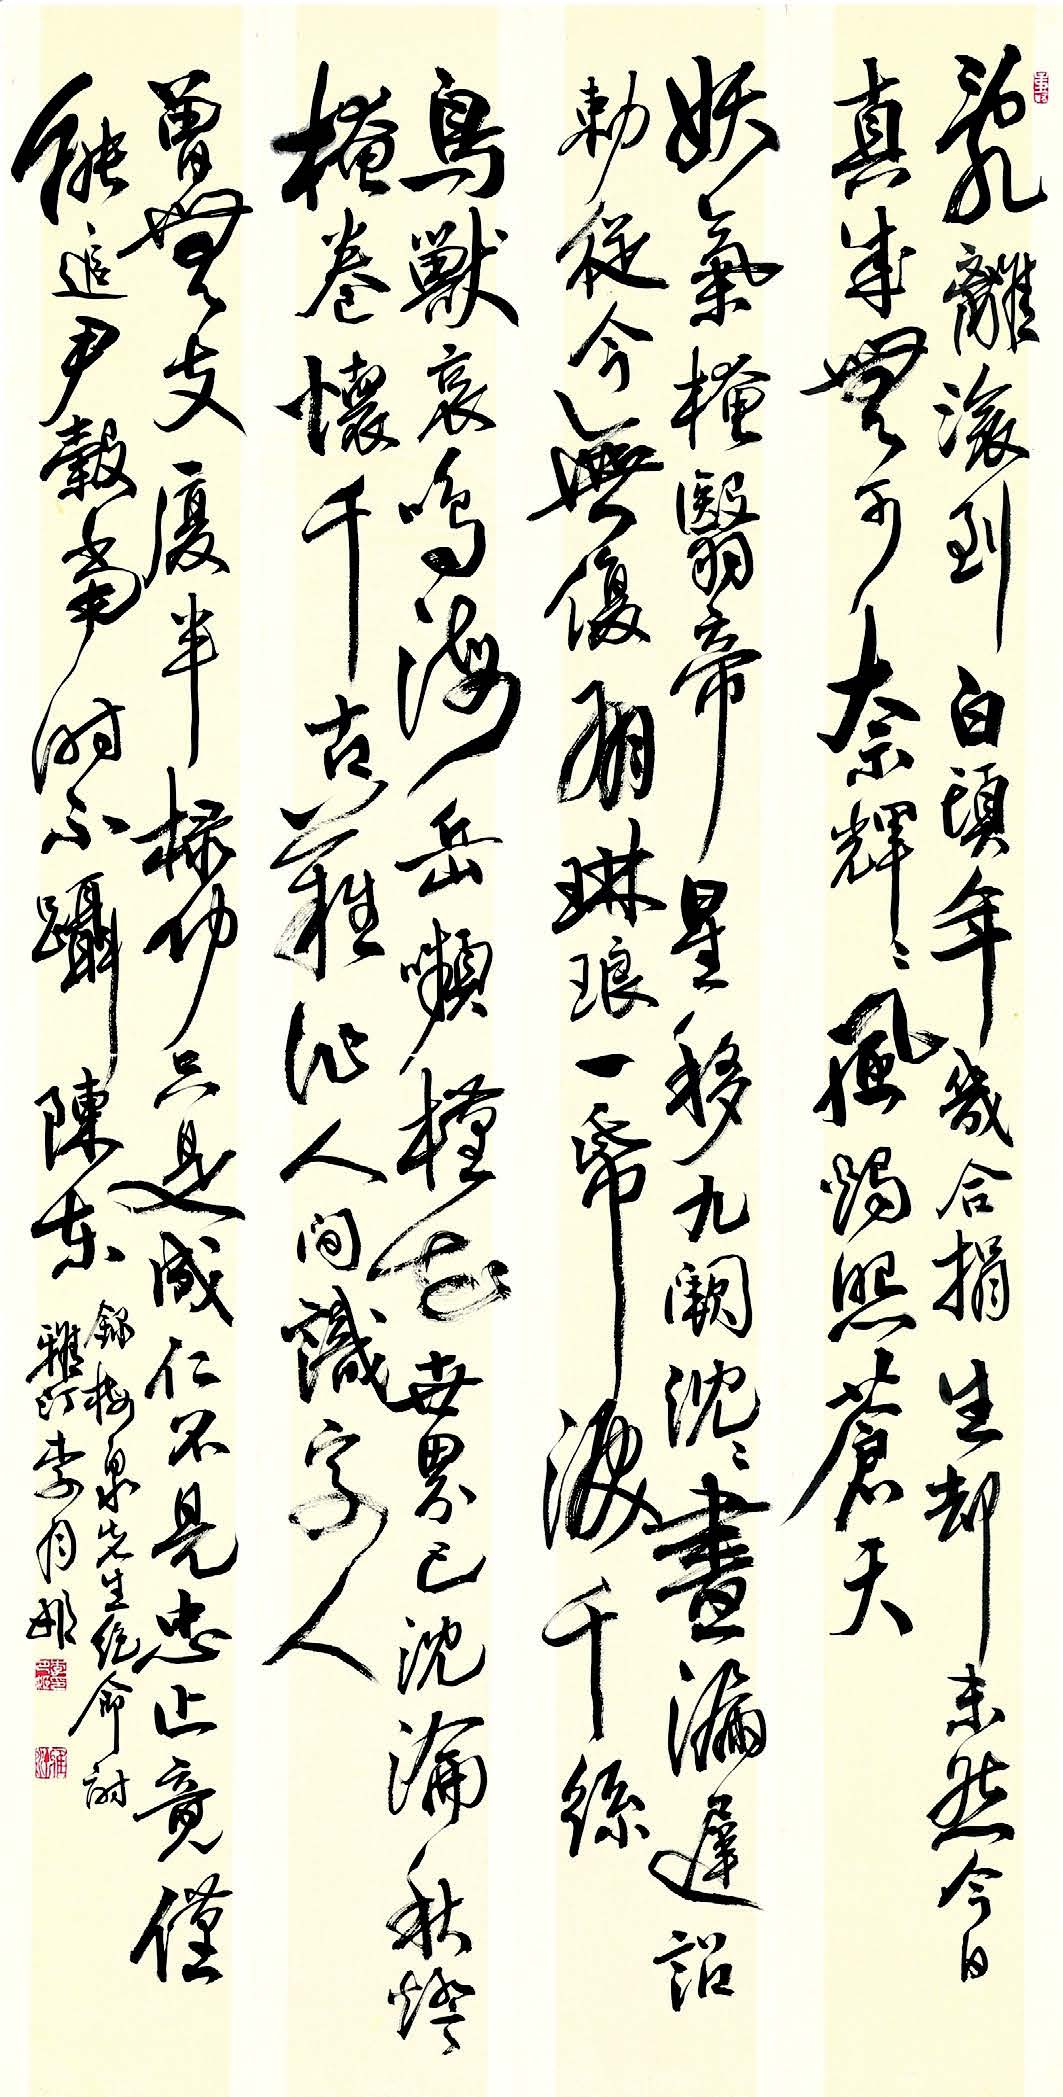 亂離滾到白頭年 幾合捐生却未然 今日
真成無可奈 輝輝風燭照蒼天
妖氣掩翳帝星移 九闕沈沈晝漏遲 詔
勅從今無復有 琳琅一紙淚千絲
鳥獸哀鳴海岳嚬 槿花世界已沈淪 秋燈
掩卷懷千古 難作人間識字人
曾無支廈半椽功 只是成仁不是忠 止竟僅
能追尹穀 當時不躡陳東
錄梅泉先生絕命詩
雅汀 李月